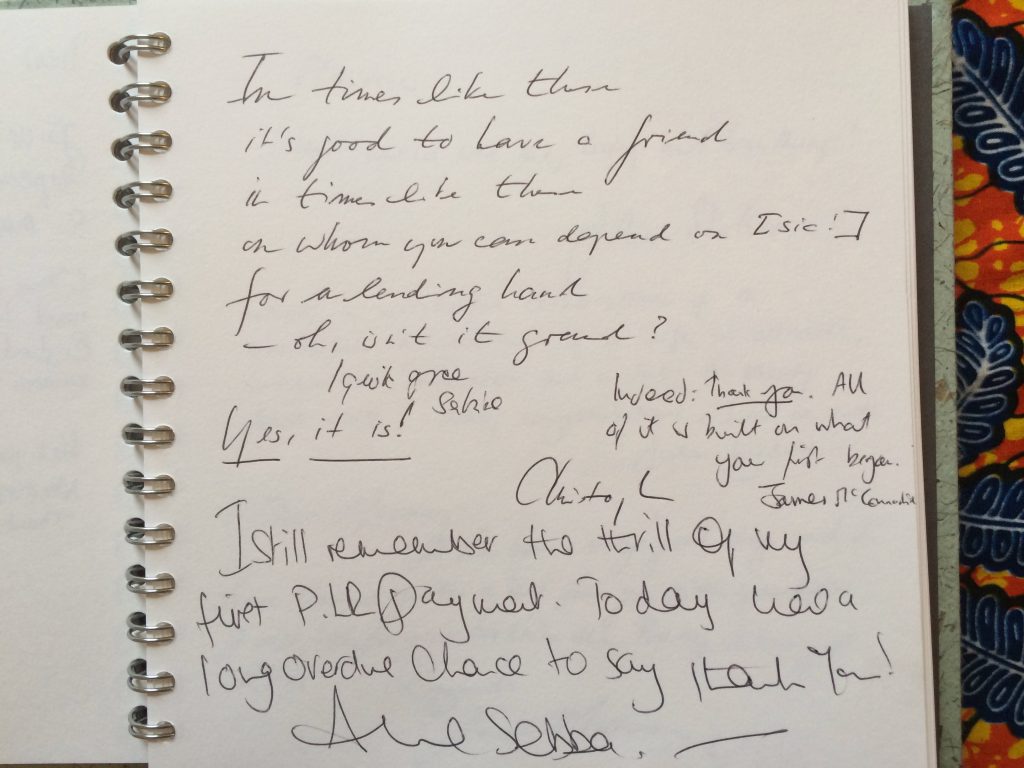 In times like these
it's good to have a friend
in times like these
on whom you can depend on [sic!]
for a lending hand
— oh, isn't it grand?
I quite agree
Yes, it is!
Indeed: Thank you. All
of it is built on what
you first began.
James
I Still remember the thrill of my
first P.LR Payment. Today was a
long overdue Chance to say thank You!
Anne Sebba.